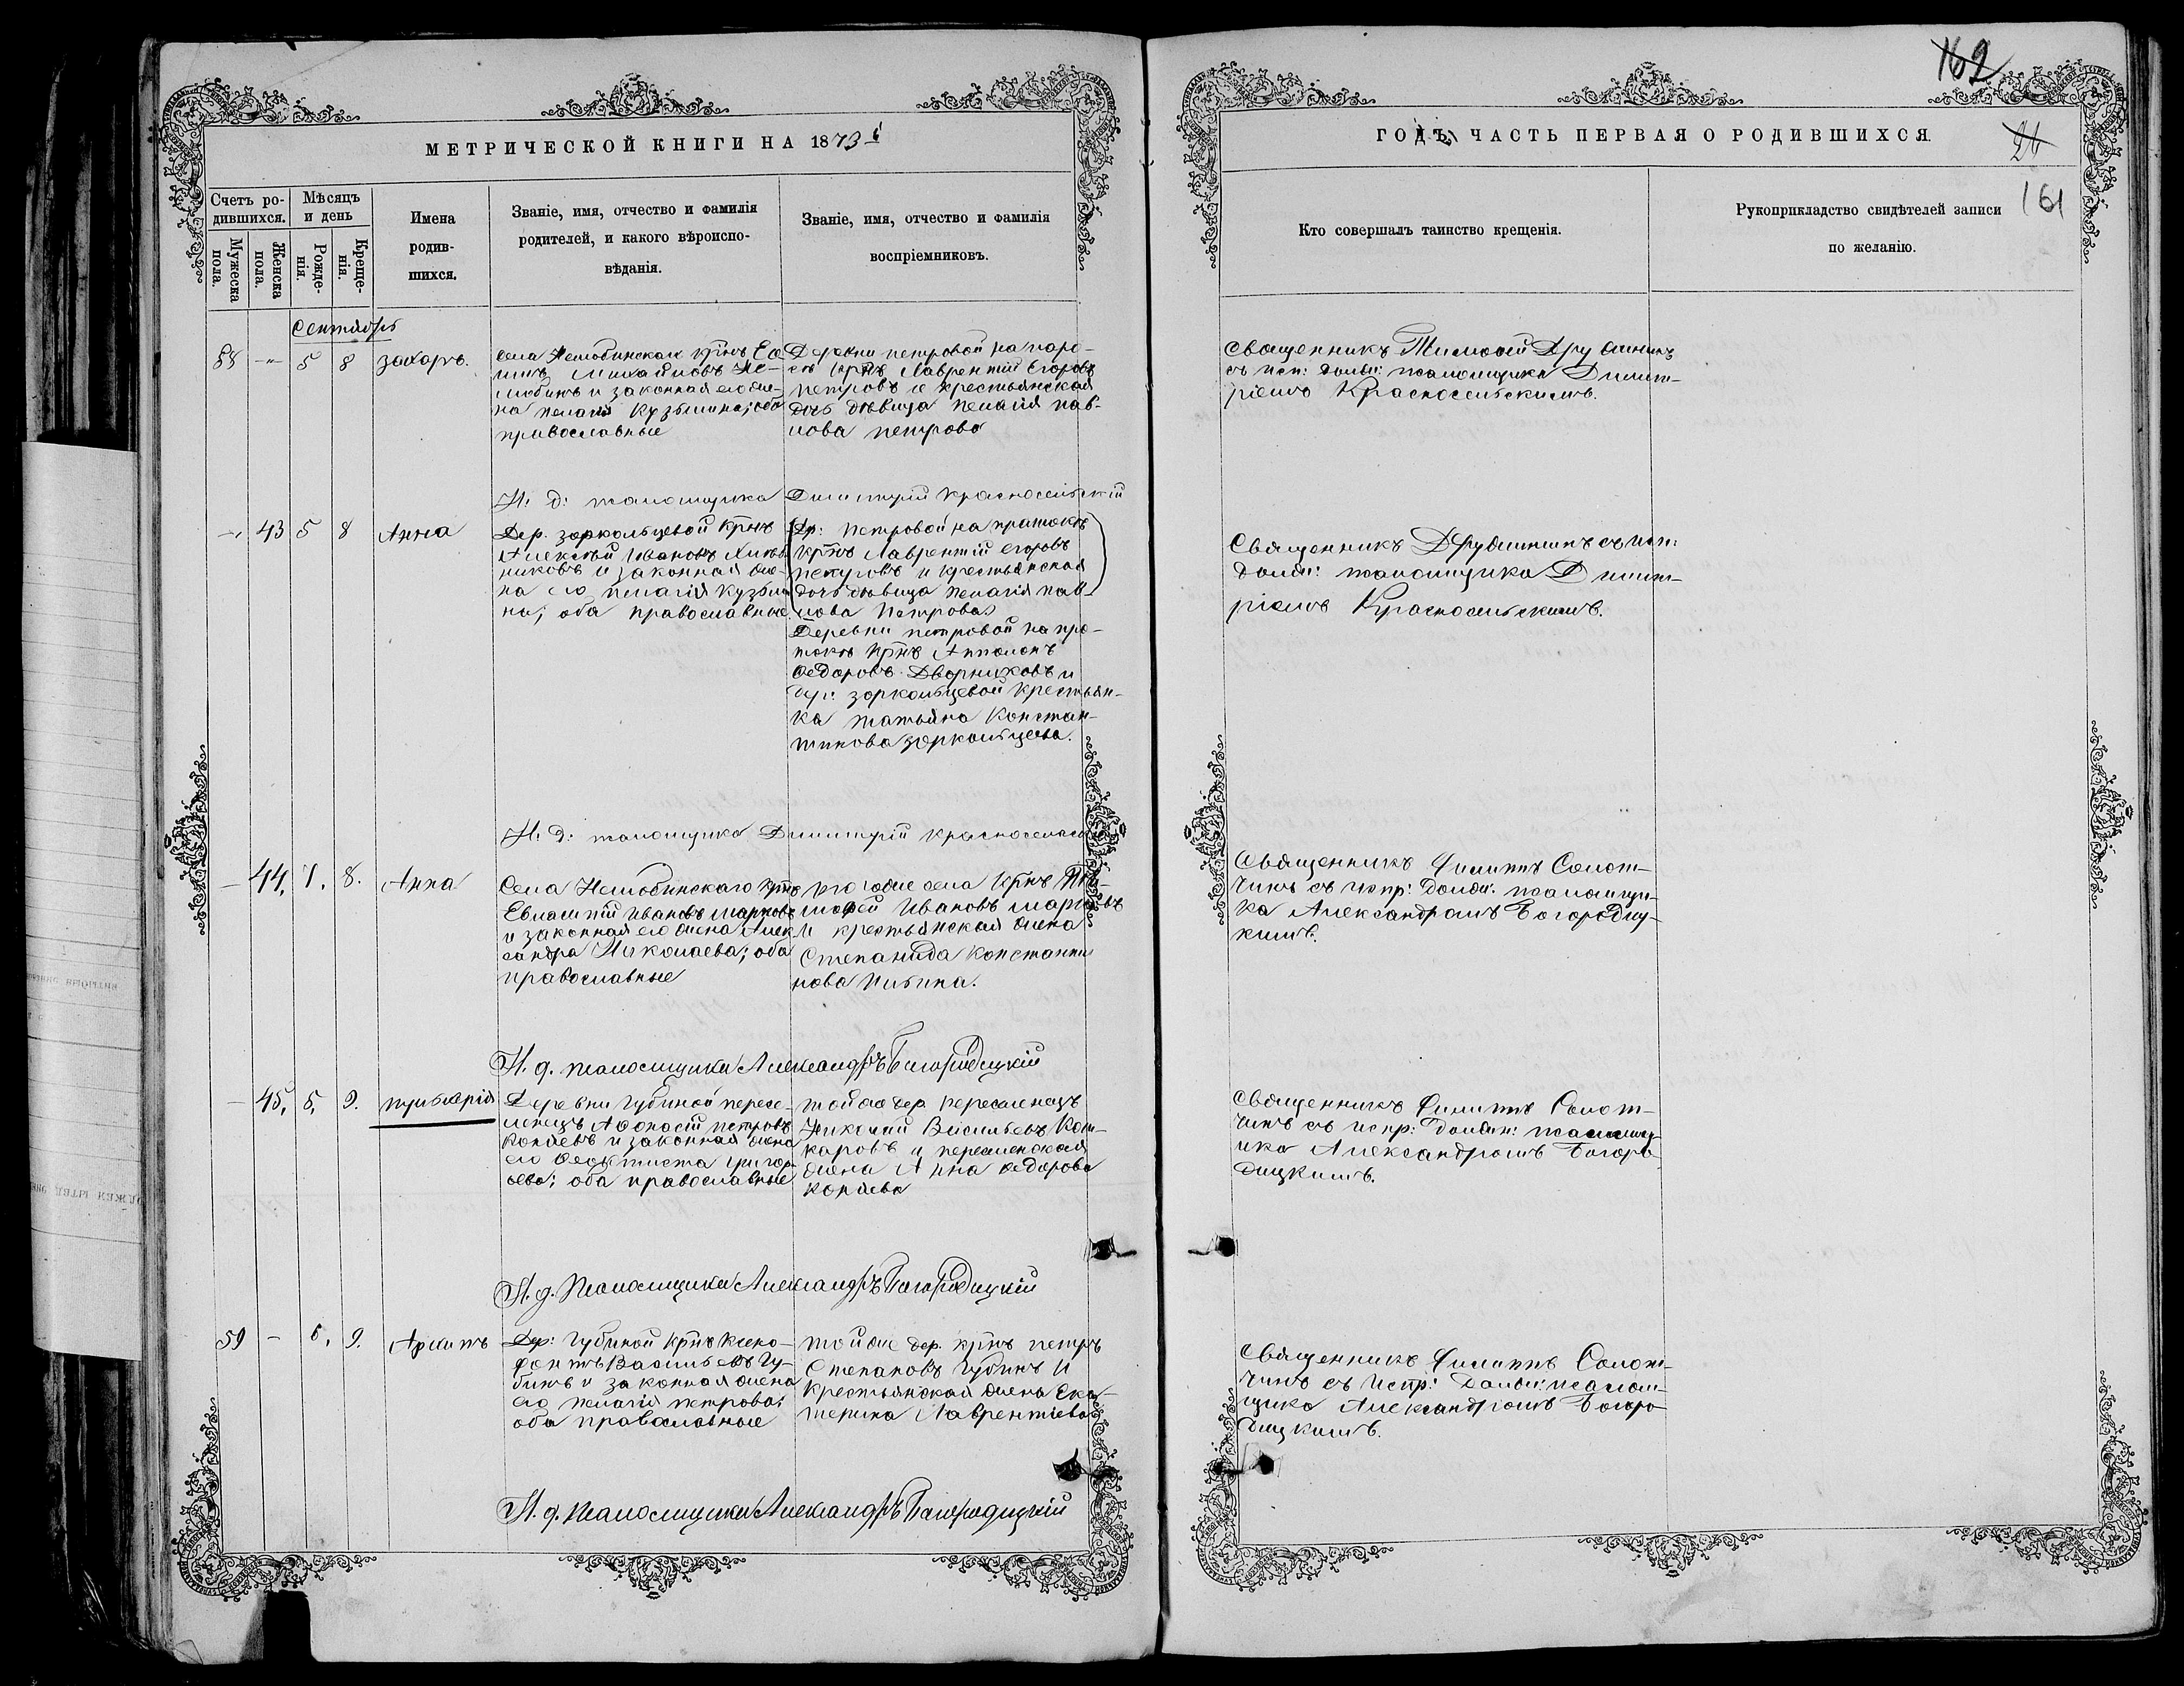 162
24
161
МЕТРИЧЕСКОЙ КНИГИ НА 1873 й
ГОДЪ, ЧАСТЬ ПЕРВАЯ О РОДИВШИХСЯ.
Счетъ ро-
дившихся.
Мужеска
пола.
Женска
пола.
Мѣсяцъ
и день
Рожде-
нія.
Креще-
нія.
Имена
родив-
шихся.
Званіе, имя, отчество и фамилія
родителей, и какого вѣроиспо-
вѣданія.
Званіе, имя, отчество и фамилія
воспріемниковъ.
Кто совершалъ таинство крещенія.
Рукоприкладство свидѣтелей записи
по желанію.
Сентябрь
58 -"- 5 8 Захаръ.
Села Нелюбинскаго крнъ
Михайловъ Не-
любинъ и законная его же-
на Пелагія Кузьмина; оба
православные
Деревни Петровой на
крнъ Лаврентій Егоровъ
Петровъ и крестьянская
дочь дѣвица Пелагія Пав-
лова Петрова
Священникъ Тимофей Дружининъ
съ исп: должн: псаломщика Димит-
ріемъ Красносельскимъ.
И: д: псаломщика Димитрій Красносельскій
-"- 43 5 8 Анна
Дер. Зоркольцевой крнъ
Алексѣй Ивановъ
никовъ и законная же-
на его Пелагія Кузьми
на; оба православные.
(Др: Петровой на протокѣ
крнъ Лаврентій Егоровъ
Петровъ и крестьянская
дочь дѣвица Пелагія Пав-
лова Петрова)
Деревни Петровой на про-
токѣ крнъ Апполонъ
Федоровъ Дворниковъ и
дер: Зоркольцевой крестьян-
ка Татьяна Констан-
тинова Зоркольцева.
Священникъ Дружининъ съ исп:
должн: псаломщика Димит-
ріемъ Красносельскимъ.
И: д: псаломщика Димитрій Красносельскій
— 44. 7. 8. Анна
Села Нелюбинскаго крнъ
Евлампій Ивановъ Марковъ
и законная его жена Алек
сандра Николаева; оба
православные
того же села крнъ Ти-
мофей Ивановъ Марковъ
И крестьянская жена
Степанида Константи
нова
Священникъ Филиппъ Солот-
чинъ съ испр: должн: псаломщи-
ка Александромъ Богородиц-
кимъ.
И. д. псаломщика Александръ Богородицкій
— 45. 5. 9. Пульхерія
Деревни Губиной пересе-
ленецъ Афонасій Петровъ
Коняевъ и законная жена
его Феоктиста Григорь
ева; оба православные
той же дер переселенецъ
Николай Васильевъ
каровъ и переселенская
жена Анна Федорова
Коняева
Священникъ Филиппъ Солот-
чинъ съ испр: должн: псаломщи-
ка Александромъ Богоро-
дицкимъ.
И. д. Псаломщика Александръ Богородицкій
59 - 6. 9. Архипъ
Дер: Губиной крнъ Ксено-
фонтъ Васильевъ Гу-
бинъ и законная жена
его Пелагія Петрова;
оба православные
той же дер. крнъ Петръ
Степановъ Губинъ И
крестьянская жена Ека-
терина Лаврентіева
Священникъ Филиппъ Солот-
чинъ съ Испр: Должн: псалом-
щика Александромъ Богоро-
дицкимъ.
И. д. Псаломщика Александръ Богородицкій